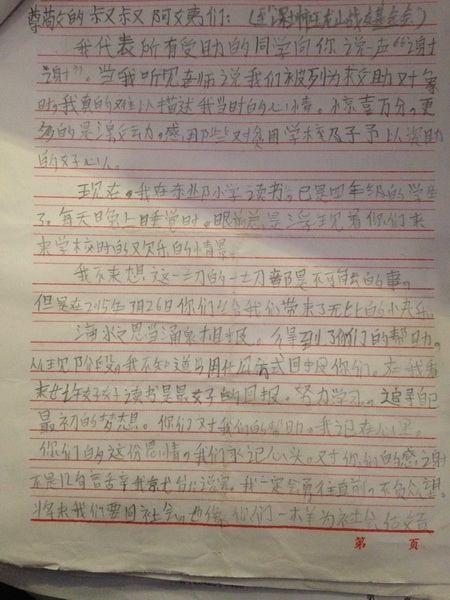 尊敬的叔叔阿姨们：
我代表所有受助的同学向你说一声“谢
谢”。当我听见老师说我们被列为求助对象
时，我真的难以描述我当时的心情。惊喜万分，更
多的是感动。感用那些对贫困学校及子予以资助
的好心人。
现在，我在小学读书，已是四年级的学生
了。每天日晚上睡觉时，眼前总是浮现着你们来
来学校时的欢乐的情景。
我不来想，这一切的一切都是不可能的事。
但是在2015年7月26日你们给我们带来了无比的小快乐。
滴水之恩当涌泉相报。得到了你们的帮助，
从现阶段，我不知道用什么方式回报你们。在我看
来好好读书是最好的回报。努力学习，追寻自己
最初的梦想。你们对我们的帮助，我记在心里。
你们的这份恩情，我们永记心头。对你们的感谢
不是几句言语我就能说完，我一定会勇往直前，不负众望。
将来我们要回社会，也像你们一样为社会
第 页